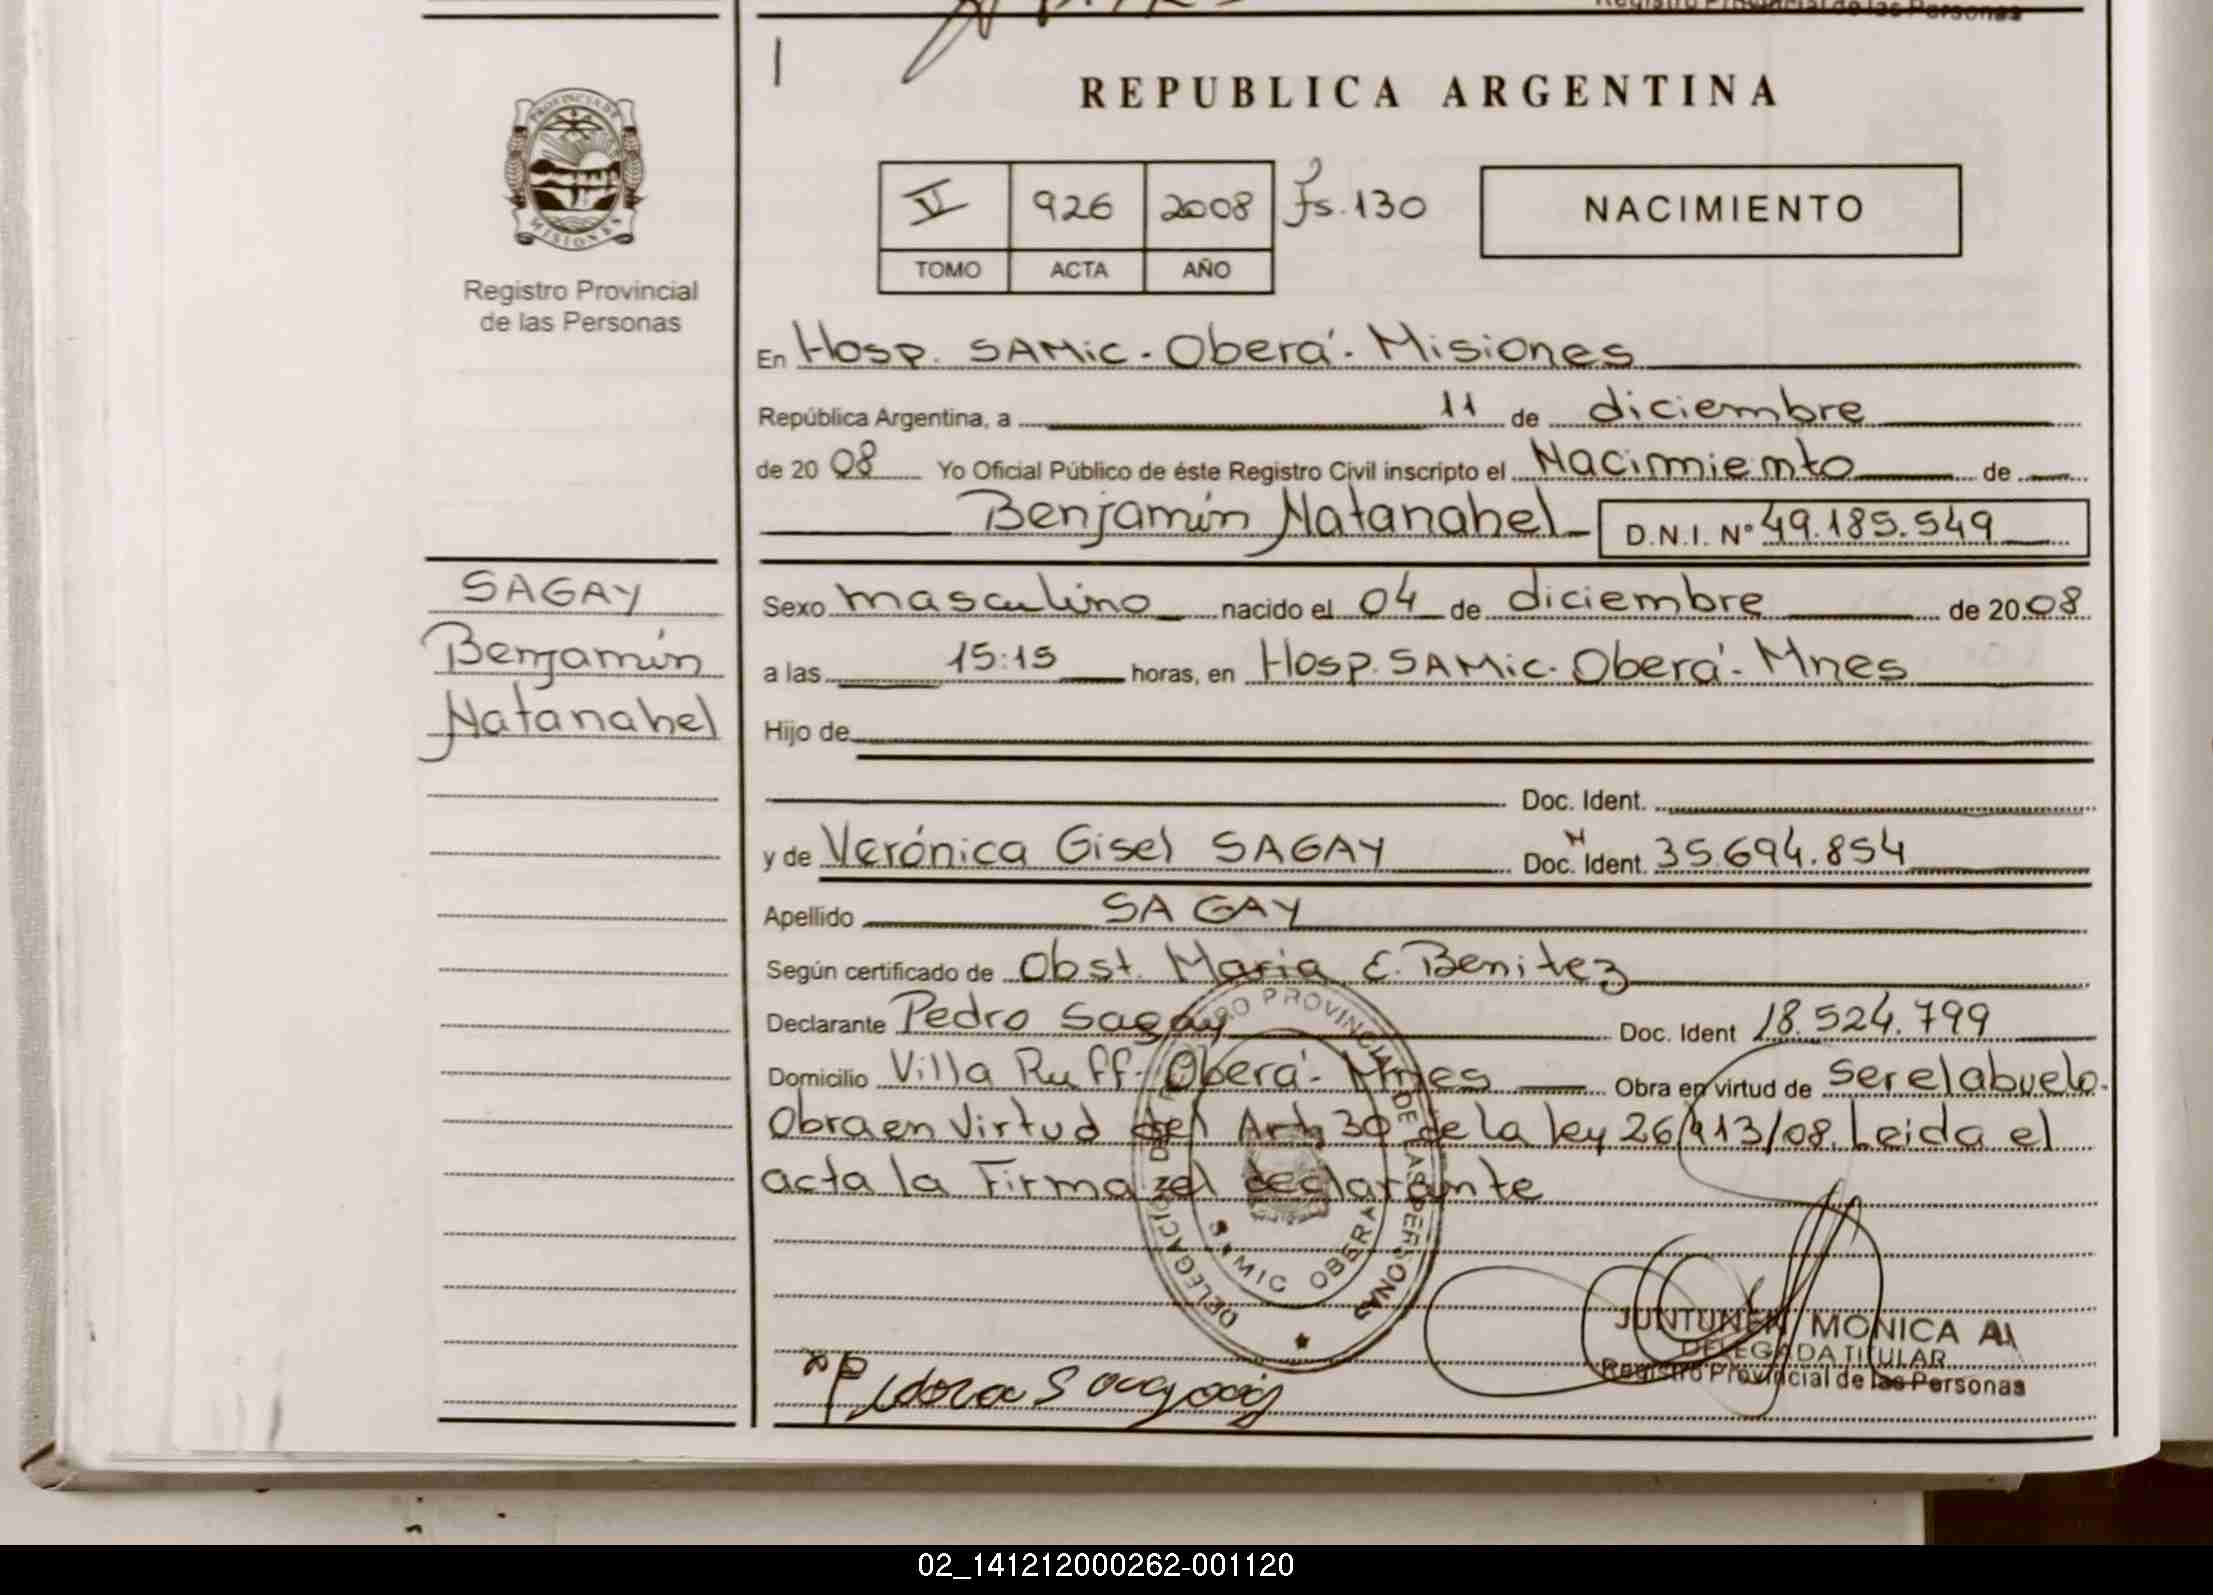 Registro Provincial de las Personas
REPUBLICA ARGENTINA
PROVINCIA DE
MISIONES
Registro Provincial
de las Personas
V 926 2008 fs. 130
TOMO ACTA AÑO
NACIMIENTO
En Hosp. SAMic - Oberá - Misiones
República Argentina, a 11 de diciembre
de 20 08 Yo Oficial Público de éste Registro Civil inscripto el Nacimiento de
Benjamín Natanahel D.N.I. Nº 49.185.549
SAGAY
Benjamín
Natanahel
Sexo masculino nacido el 04 de diciembre de 20 08
a las 15:15 horas, en Hosp. SAMic - Oberá - Mnes
Hijo de
Doc. Ident.
y de Verónica Gisel SAGAY Doc. Ident. 35.694.854
Apellido SAGAY
Según certificado de Obst. Maria E. Benitez
Declarante Pedro Sagay Doc. Ident 18.524.799
Domicilio Villa Ruff - Oberá - Mnes Obra en virtud de ser el abuelo.
Obra en Virtud del Art 30 de la ley 26413/08. Leida el
acta la Firma el declarante
DELEGACION REGISTRO PROVINCIAL DE LAS PERSONAS
SAMIC OBERA
JUNTUNEN MONICA A
DELEGADA TITULAR
Registro Provincial de las Personas
02_141212000262-001120